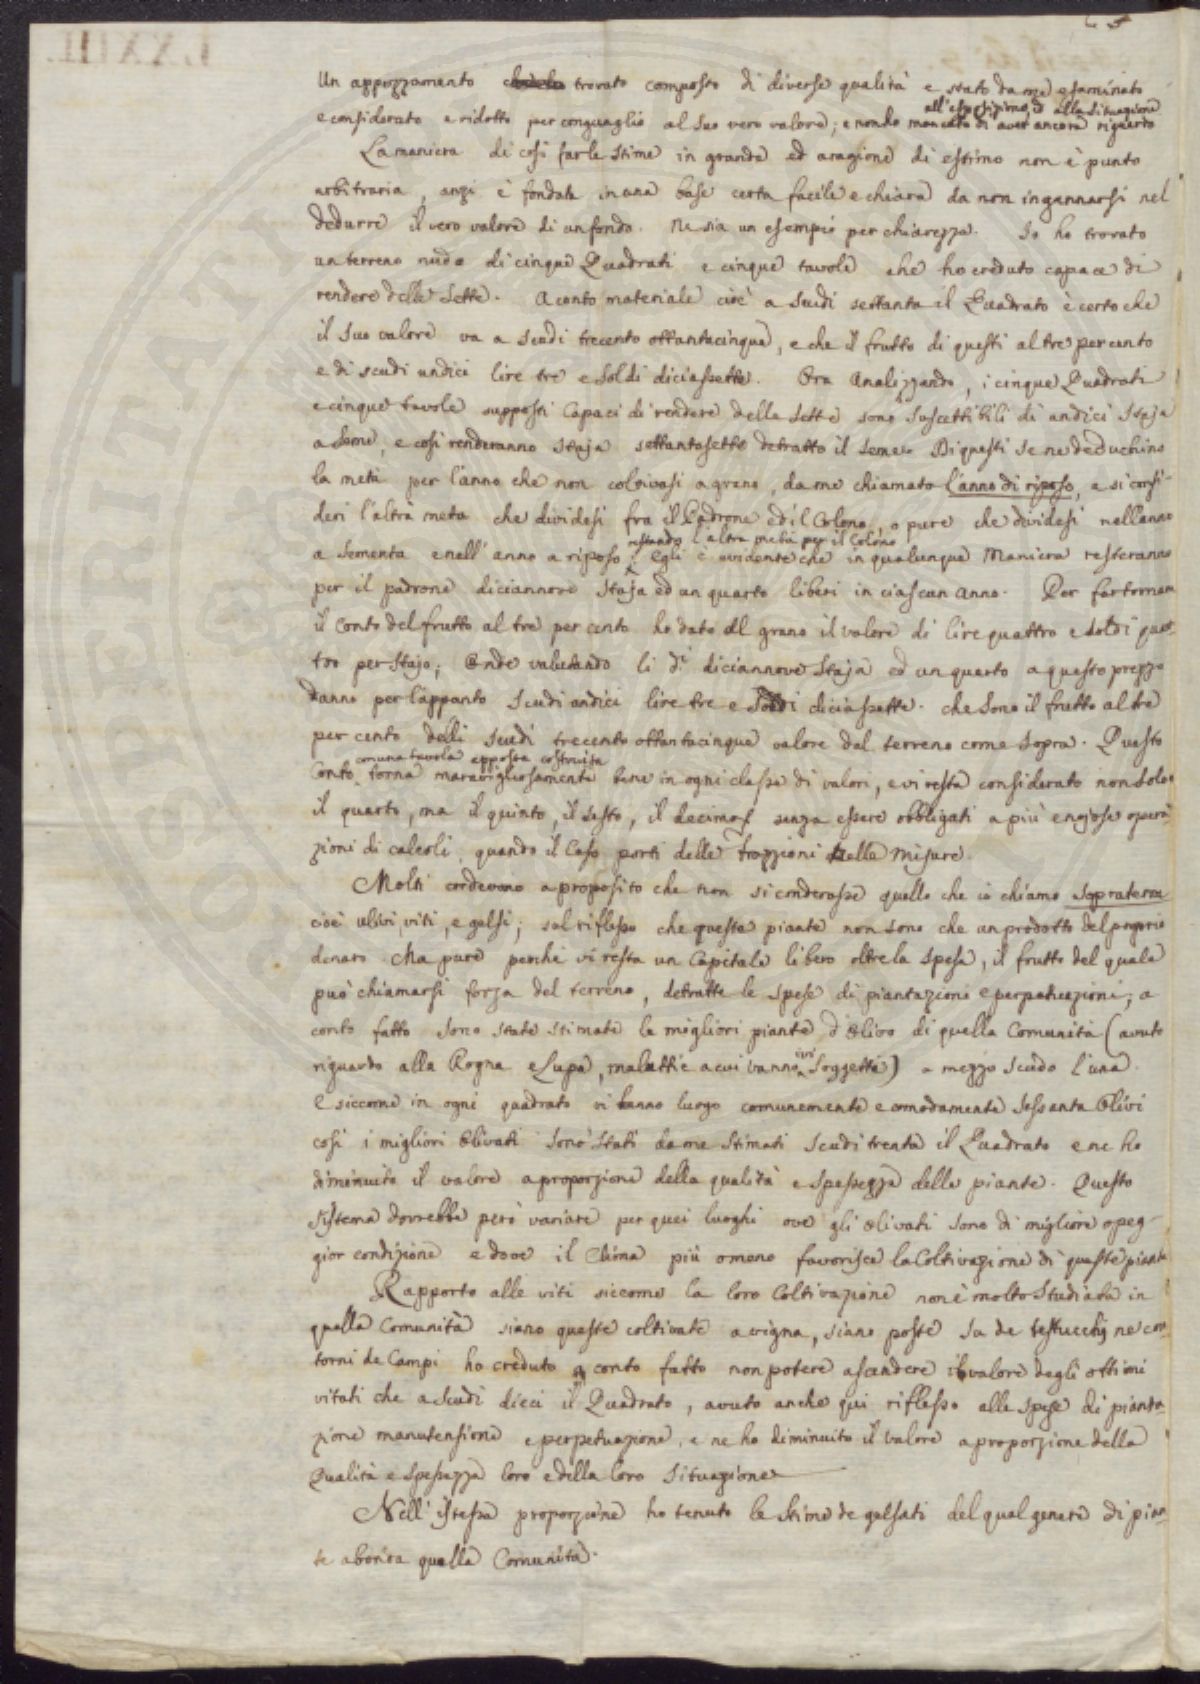 Un appezzamento trovato composto di diverse qualità e stato da me esaminato
all'esposizione, e alla situazione
e considerato e ridotto per conguaglio al suo vero valore; e non ho mancato di aver ancora riguardo
La maniera di così far le stime in grande ed a ragione di estimo non è punto
arbitraria, anzi è fondata in una base certa facile e chiara da non ingannarsi nel
dedurre il vero valore di un fondo. Ne sia un esempio per chiarezza. Io ho trovato
un terreno nudo di cinque Quadrati e cinque tavole che ho creduto capace di
rendere delle Sette. A conto materiale cioè a Scudi settanta il Quadrato è certo che
il suo valore va a scudi trecento ottantacinque, e che il frutto di questi al tre per cento
e di scudi undici lire tre e soldi diciassette. Ora Analizzando, i cinque Quadrati
e cinque tavole supposti Capaci di rendere delle Sette sono suscettibili di undici Staja
a Seme, e così renderanno Staja settantasette detratto il Seme. Di questi se ne deduchino
la metà per l'anno che non coltivasi a grano, da me chiamato l'anno di riposo, e si consi-
deri l'altra metà che dividesi fra il Padrone ed il Colono, o pure che dividesi nell'anno
restando l'altra metà per il Colono
a Sementa e nell'anno a riposo; Egli è evidente che in qualunque Maniera resteranno
per il padrone diciannove Staja ed un quarto liberi in ciascun anno. Per far tornare
il Conto del frutto al tre per cento ho dato al grano il valore di lire quattro e soldi quat-
tro per Stajo; Onde valutando li di diciannove Staja ed un quarto a questo prezzo
danno per l'appunto Scudi undici lire tre e Soldi diciassette. che sono il frutto al tre
per cento delli Scudi trecento ottantacinque valore del terreno come sopra. Questo
con una tavola apposta costruita
Conto torna maravigliosamente bene in ogni classe di valori, e vi resta considerato non solo
il quarto, ma il quinto, il sesto, il decimo senza essere obbligati a più enojose opera-
zioni di calcoli, quando il Caso porti delle frazzioni nelle Misure.
Molti crederono a proposito che non si considerasse quello che io chiamo Sopraterra
cioè ulivi, viti, e gelsi; sul riflesso che queste piante non sono che un prodotto del proprio
denaro. Ma pure perchè vi resta un Capitale libero oltre la spesa, il frutto del quale
può chiamarsi forza del terreno, detratte le spese di piantazione e perpetuazione; a
conto fatto sono state stimate le migliori piante d'Olivo di quella Comunità (avuto
riguardo alla Rogna e Lupa, malattie a cui vanno ivi soggette) a mezzo Scudo l'una.
E siccome in ogni quadrato vi hanno luogo comunemente e comodamente sessanta Olivi
così i migliori Olivati sono stati da me stimati Scudi trenta il Quadrato e ne ho
diminuito il valore a proporzione della qualità e spessezza delle piante. Questo
sistema dovrebbe però variare per quei luoghi ove gli Olivati sono di migliore o peg-
gior condizione e dove il Clima più o meno favorisca la Coltivazione di queste piante
Rapporto alle viti siccome la loro Coltivazione non è molto studiata in
quella Comunità siano queste coltivate a vigna, siano poste su de testucchj ne con-
torni de Campi ho creduto a conto fatto non potere ascendere il valore degli ottimi
vitati che a Scudi dieci il Quadrato, avuto anche qui riflesso alle spese di pianta-
zione manutensione e perpetuazione, e ne ho diminuito il valore a proporzione della
Qualità e spessezza loro e della loro Situazione
Nell'istessa proporzione ho tenuto le stime de gelsati del qual genere di pian-
te abonda quella Comunità.